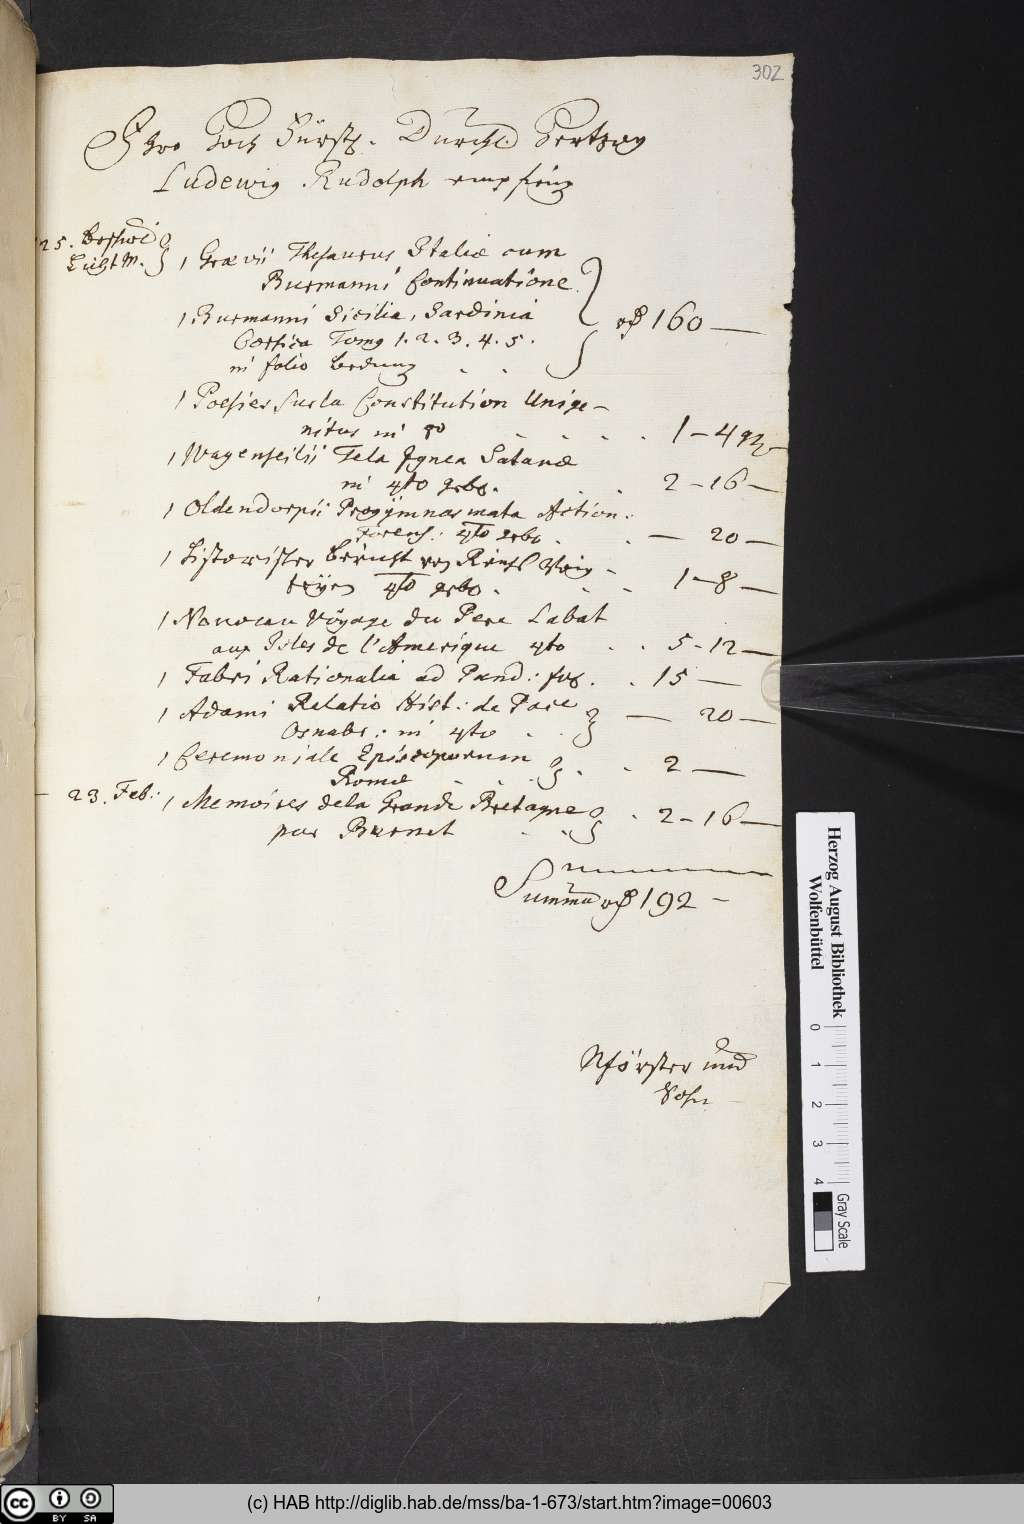 302
Ihro Hoch Fürstl. Durchl. Hertzog
Ludewig Rudolph empfing
25.
Licht M.
1 Grævii Thesaurus Italiæ cum
Burmanni Continuatione
1 Burmanni Sicilia, Sardinia
Corsica Tomq 1. 2. 3. 4. 5. rthl 160 —
in folio
1 Poesies Sur la Constitution Unige-
nitus in 8o 1 – 4 gr –
1 Wagenseilii Tela Ignea Satanæ
in 4to gebd. 2 – 16 —
1 Oldendorpii Progÿmnasmata Action:
Forens: 4to gebd. — 20 —
1 Historischer Bericht von
4to gebd. 1 – 8 —
1 Nouveau Vöyage du Pere Labat
aux Isles de l'Amerique 4to 5 – 12 —
1 Fabri Rationalia ad Pand: 15 —
1 Adami Relatio Hist: de Pace
Osnabr: in 4to — 20 —
1 Ceremoniale Episcoporum
Romæ 2 —
– 23. Feb: 1 Memoires de la Grande Bretagne
par Burnet 2 – 16 —
Summa rthl 192 –
Förster und
Sohn
Herzog August Bibliothek
Wolfenbüttel
0 1 2 3 4
Gray Scale
cc BY SA
(c) HAB http://diglib.hab.de/mss/ba-1-673/start.htm?image=00603